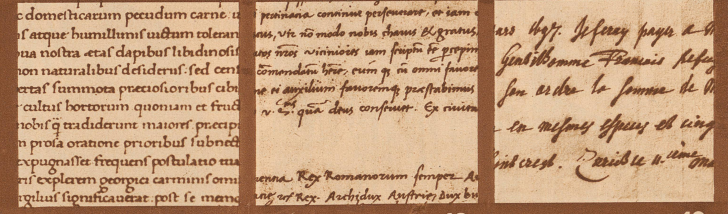 domesticarum pecudum carne u
s atque humillimis uictum toleran
ua nostra ætas dapibus libidinosis
on naturalibus desideriis: sed cen
ertas summota præciosioribus cibi
cultus hortorum quoniam et fruct
nobis q tradiderunt maiores præcip
prosa oratione prioribus subnect
expugnasset frequens postulatio tua
s explerem georgici carminis omi
gilius significauerat post se memo
continue perseverare, et iam e
haus, ut no modo nobis charus & gratus,
tos nros viciniores iam scriptu te
comendatu here, cum q in omni favore
ne ei auxilium favoremq præstabimus
v. qua deus conseruet. Ex civita
Rex Romanorum semper Au
Rex. Archidux Austrie, Dux bu
ars 1697. Je feray payer a
Gentilhomme François Refug
son ordre la somme de
en mesmes especes et cinq
interest. Zurich le 11.ième ma